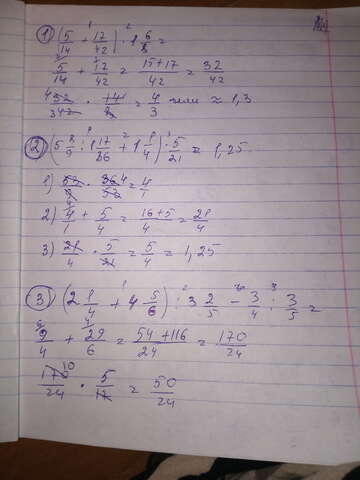 1) (5/14 + 17/42) · 1 6/8 =
5/14 + 17/42 = 15+17/42 = 32/42
32/42 · 14/8 = 4/3 или ≈ 1,3
2) (5 8/9 : 1 17/36 + 1 1/4) · 5/21 = 1,25
1) 53/9 · 36/53 = 4/1
2) 4/1 + 5/4 = 16+5/4 = 21/4
3) 21/4 · 5/21 = 5/4 = 1,25
3) (2 1/4 + 4 5/6) : 3 2/5 - 3/4 : 3/5 =
9/4 + 29/6 = 54+116/24 = 170/24
170/24 · 5/17 = 50/24